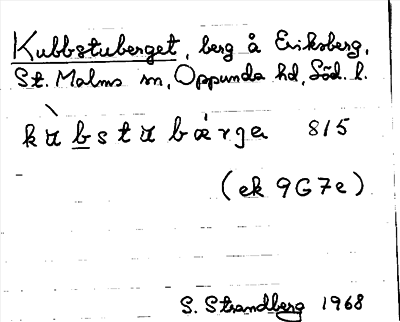 Kubbstuberget, berg å Eriksberg,
St. Malms sn, Oppunda hd, Söd. l.
kʉ̀bstʉbǽrgə 8/5
(ek 9G7e)
S. Strandberg 1968